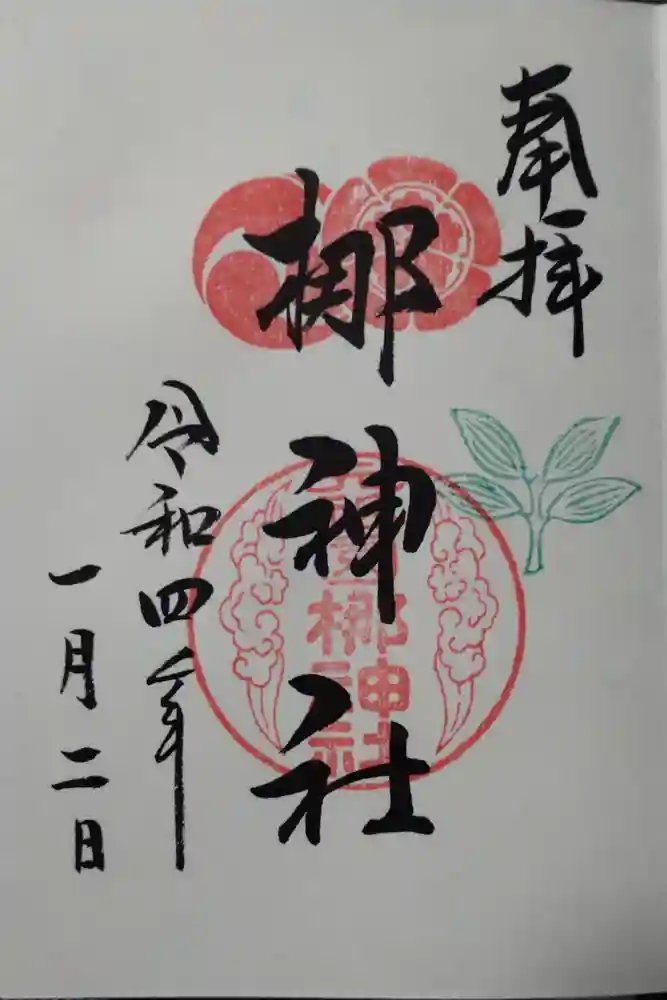 奉拝
梛神社
令和四年
一月二日
梛神社